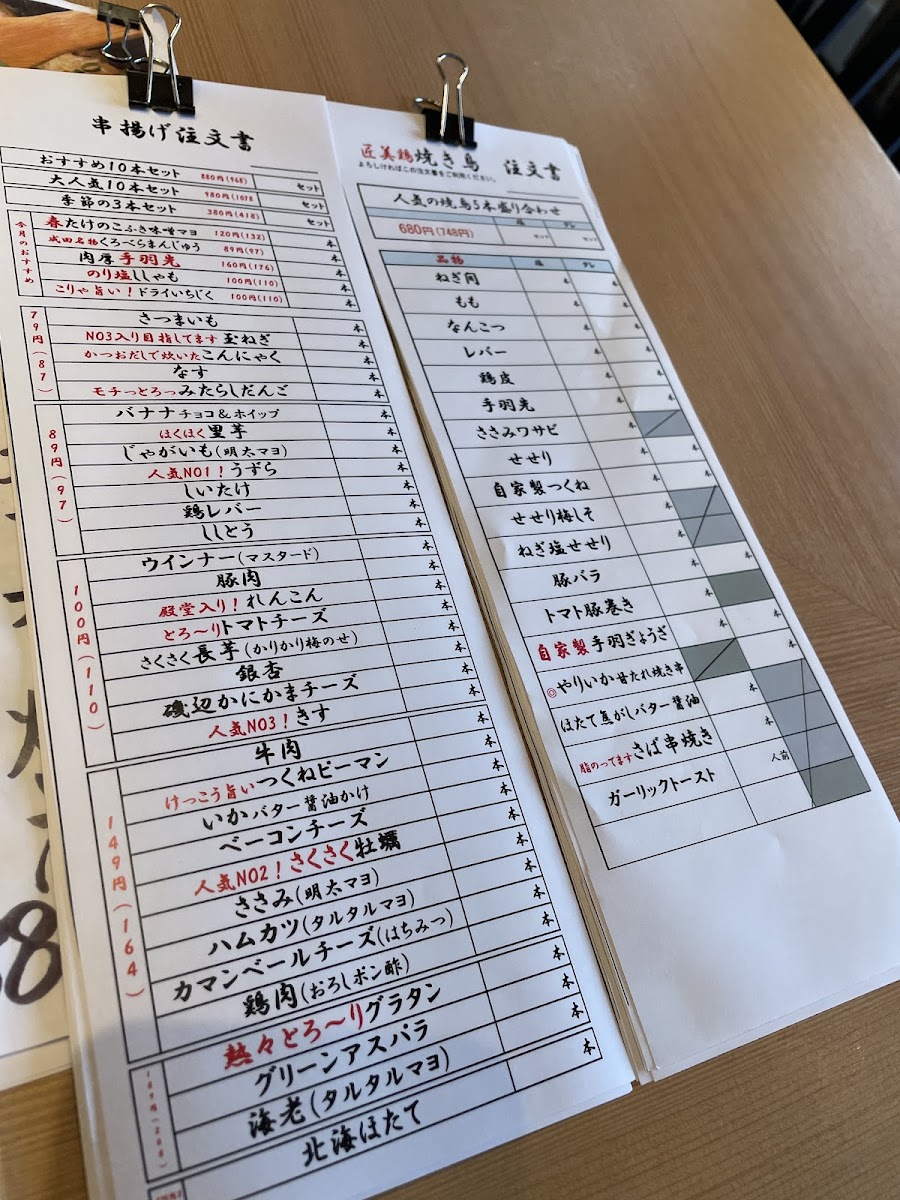 串揚げ注文書
おすすめ10本セット 880円(968) セット
大人気10本セット 980円(1078 セット
季節の3本セット 380円(418) セット
今月のおすすめ
春たけのこふき味噌マヨ 120円(132) 本
成田名物くろべらまんじゅう 89円(97) 本
肉厚手羽先 160円(176) 本
のり塩ししゃも 100円(110) 本
こりゃ旨い!ドライいちじく 100円(110) 本
79円(87)
さつまいも 本
NO3入り目指してます 玉ねぎ 本
かつおだしで炊いたこんにゃく 本
なす 本
モチっとろっみたらしだんご 本
89円(97)
バナナチョコ&ホイップ 本
ほくほく里芋 本
じゃがいも(明太マヨ) 本
人気NO1!うずら 本
しいたけ 本
鶏レバー 本
ししとう 本
100円(110)
ウインナー(マスタード) 本
豚肉 本
殿堂入り!れんこん 本
とろ〜りトマトチーズ 本
さくさく長芋(かりかり梅のせ) 本
銀杏 本
磯辺かにかまチーズ 本
人気NO3!きす 本
149円(164)
牛肉 本
けっこう旨いつくねピーマン 本
いかバター醤油かけ 本
ベーコンチーズ 本
人気NO2!さくさく牡蠣 本
ささみ(明太マヨ) 本
ハムカツ(タルタルマヨ) 本
カマンベールチーズ(はちみつ) 本
鶏肉(おろしポン酢) 本
熱々とろ〜りグラタン 本
グリーンアスパラ 本
海老(タルタルマヨ) 本
北海ほたて
匠美鶏焼き鳥 注文書
よろしければこの注文書をご利用ください。
人気の焼鳥5本盛り合わせ
680円(748円) 塩 セット タレ セット
品物 塩 タレ
ねぎ間 本 本
もも 本 本
なんこつ 本 本
レバー 本 本
鶏皮 本 本
手羽先 本 本
ささみワサビ 本
せせり 本 本
自家製つくね 本 本
せせり梅しそ 本
ねぎ塩せせり 本
豚バラ 本 本
トマト豚巻き 本
自家製手羽ぎょうざ 本 本
◎やりいか甘たれ焼き串 本
ほたて焦がしバター醤油 本
脂のってますさば串焼き 本
ガーリックトースト 人前